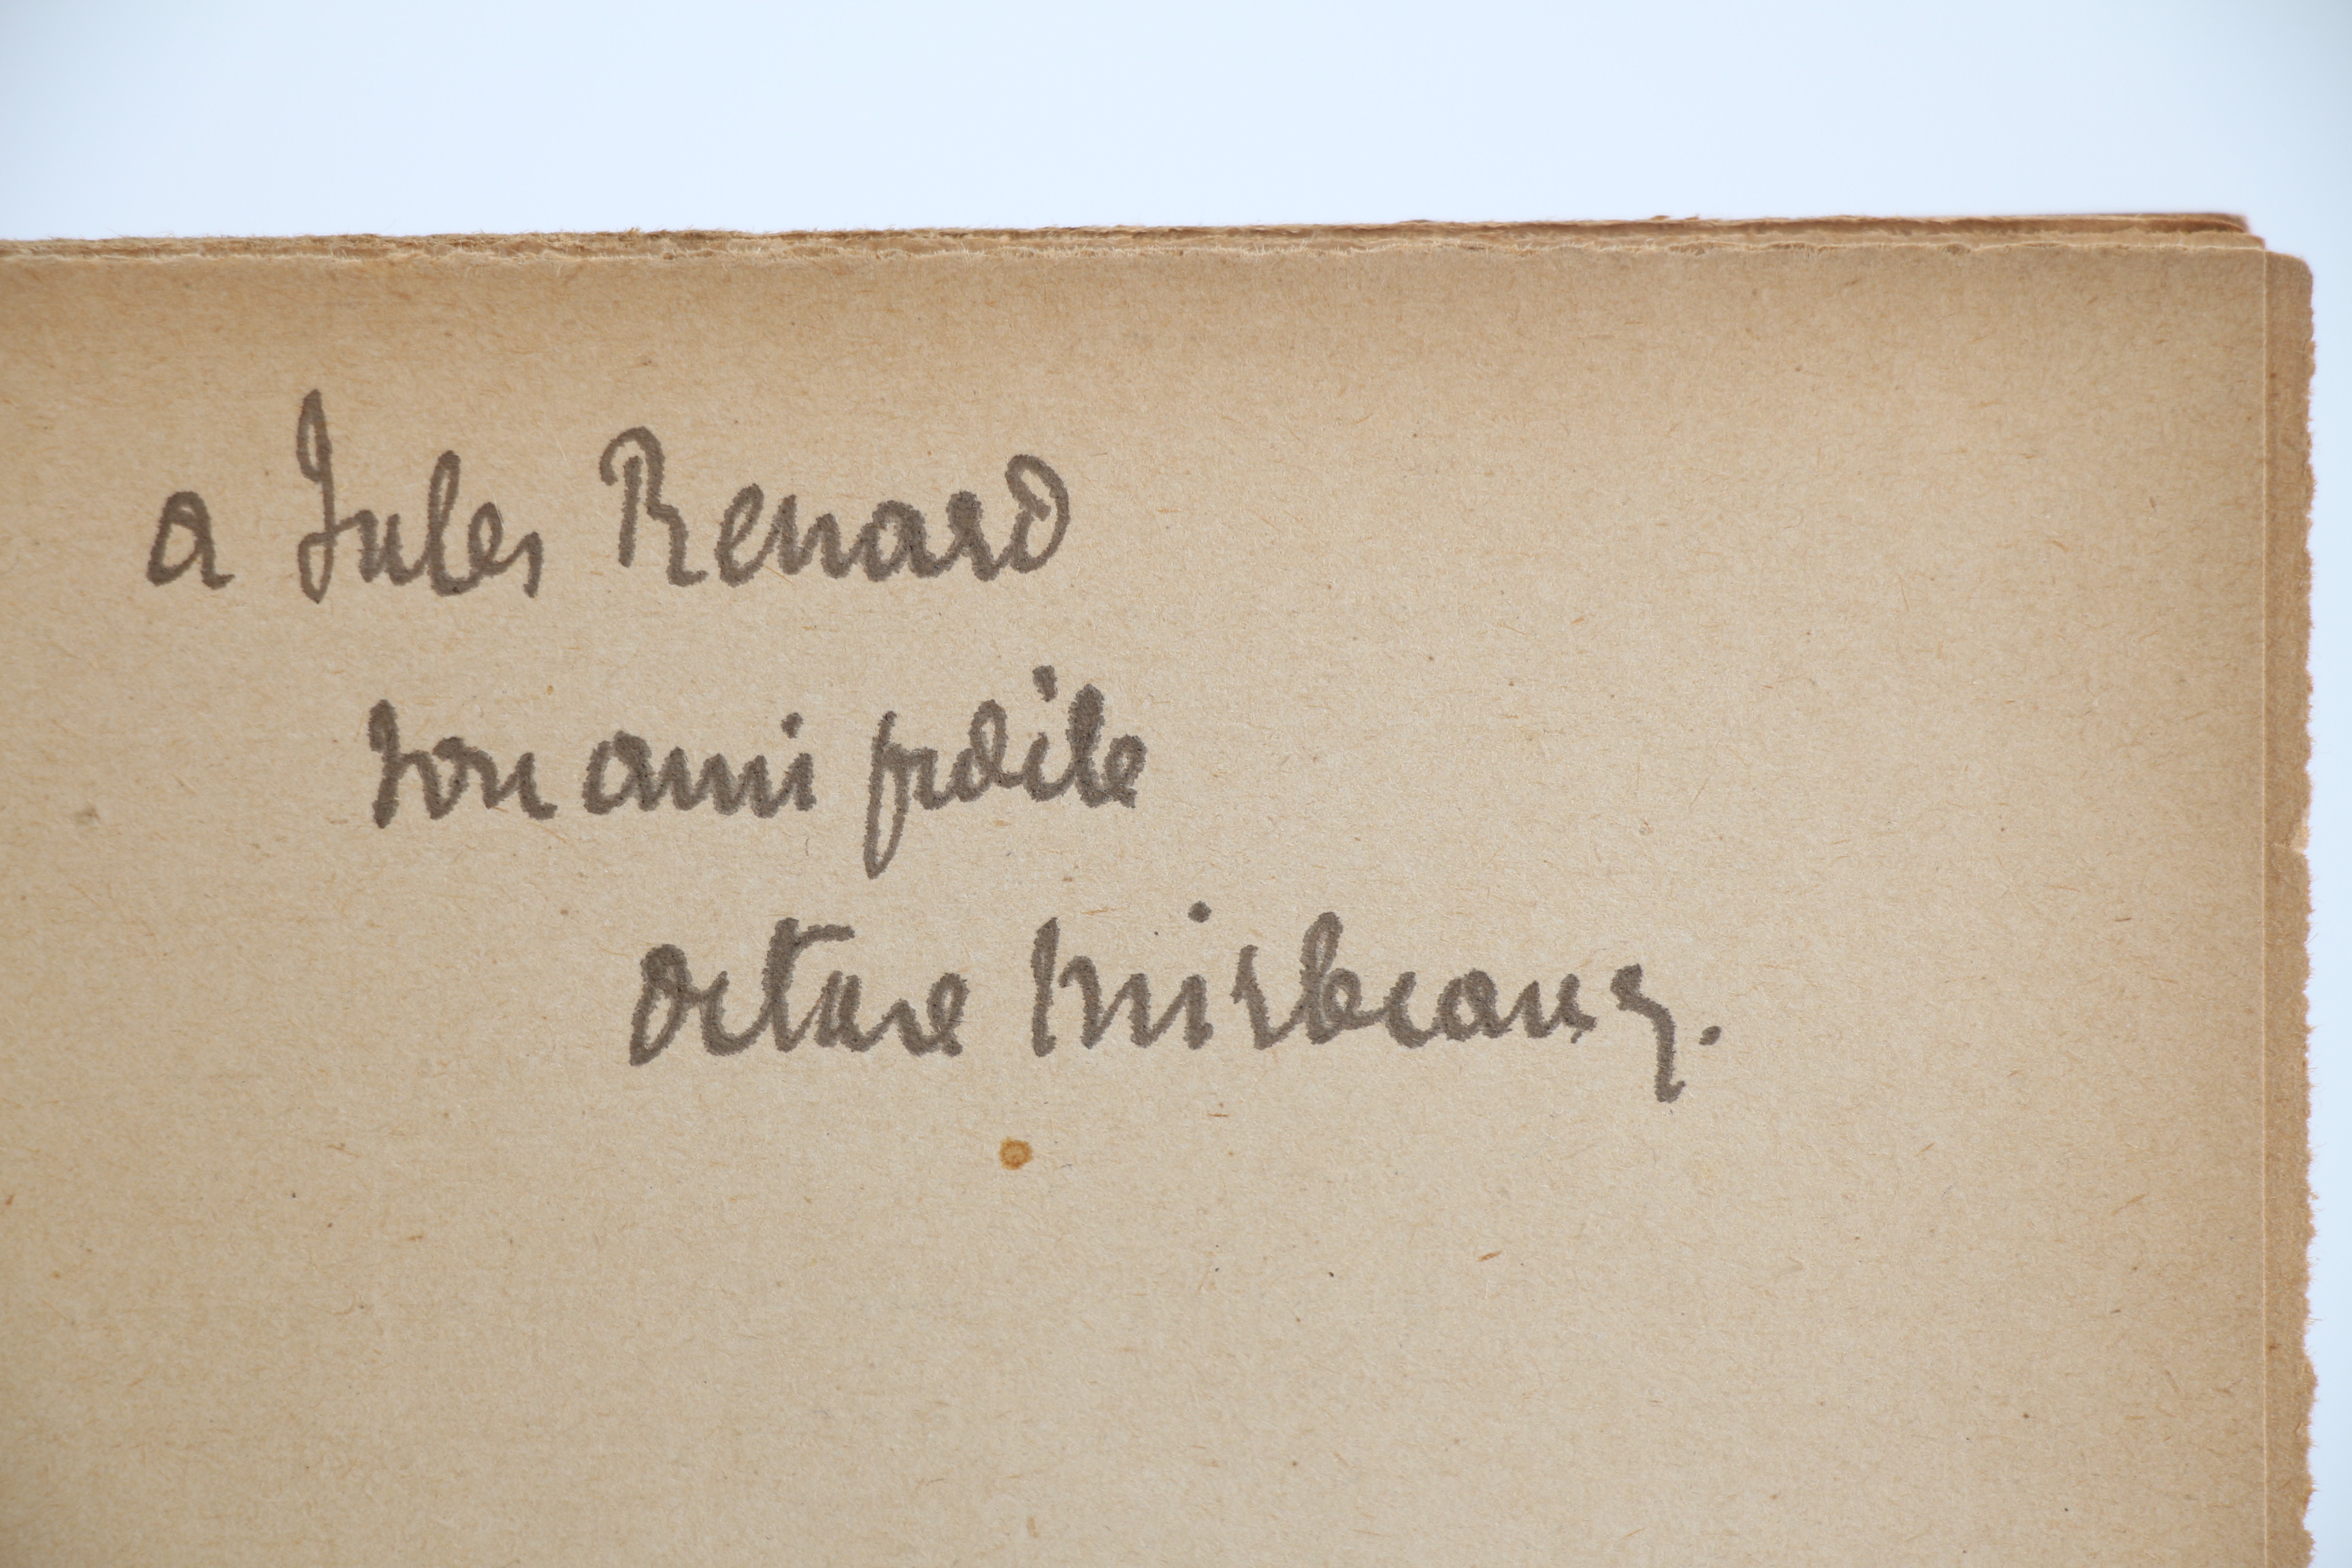 a Jules Renard
son ami fidèle
Octave Mirbeau.